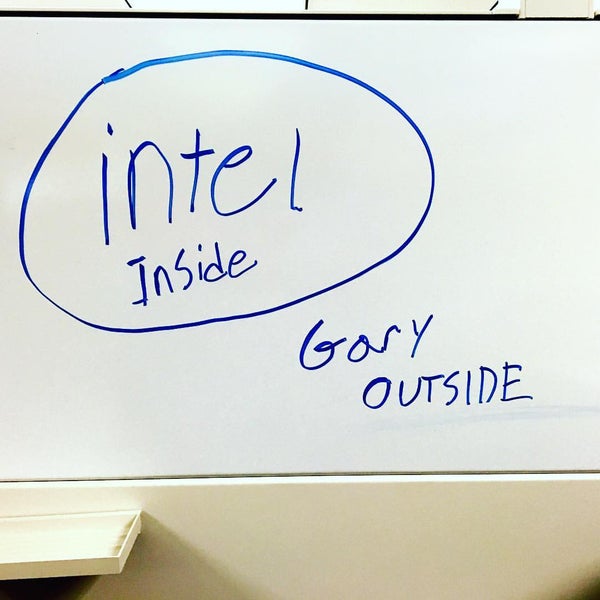 intel
Inside
Gary
OUTSIDE